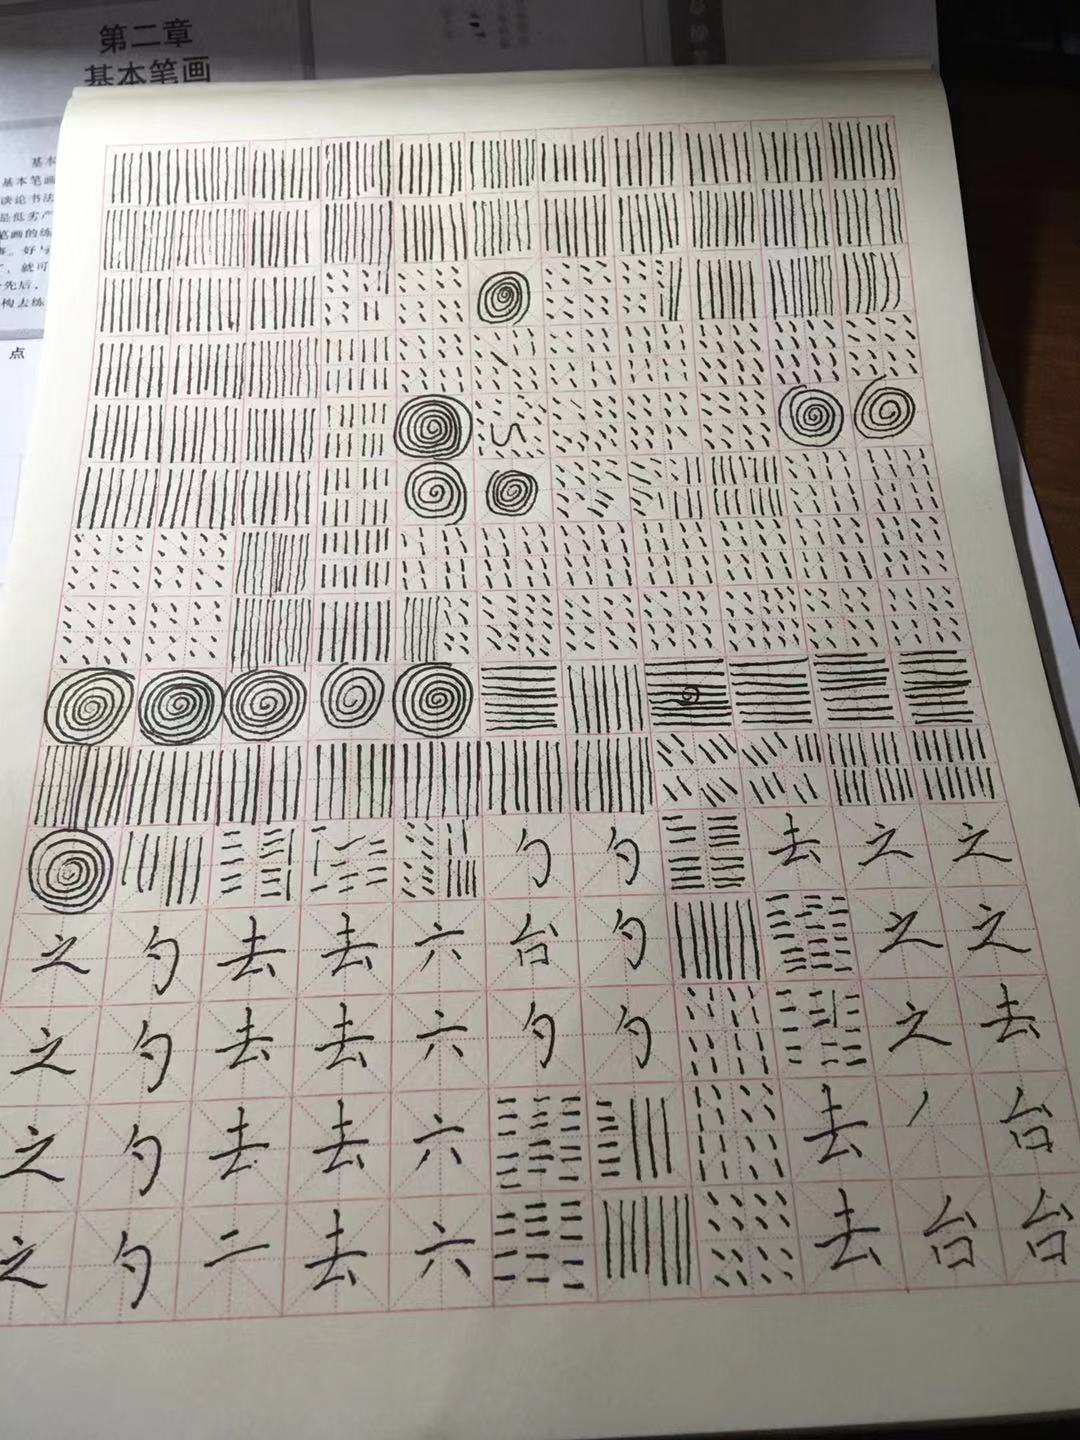 第二章
基本笔画
基本
基本笔画
谈论书法
是低劣产
笔画的练
事。好与
就可
先后，
构去练
点
勺 勺 去 之 之
之 勺 去 去 六 台 勺 之 之
之 勺 去 去 六 勺 勺 之 去
之 勺 去 去 六 去 台
之 勺 二 去 六 去 台 台